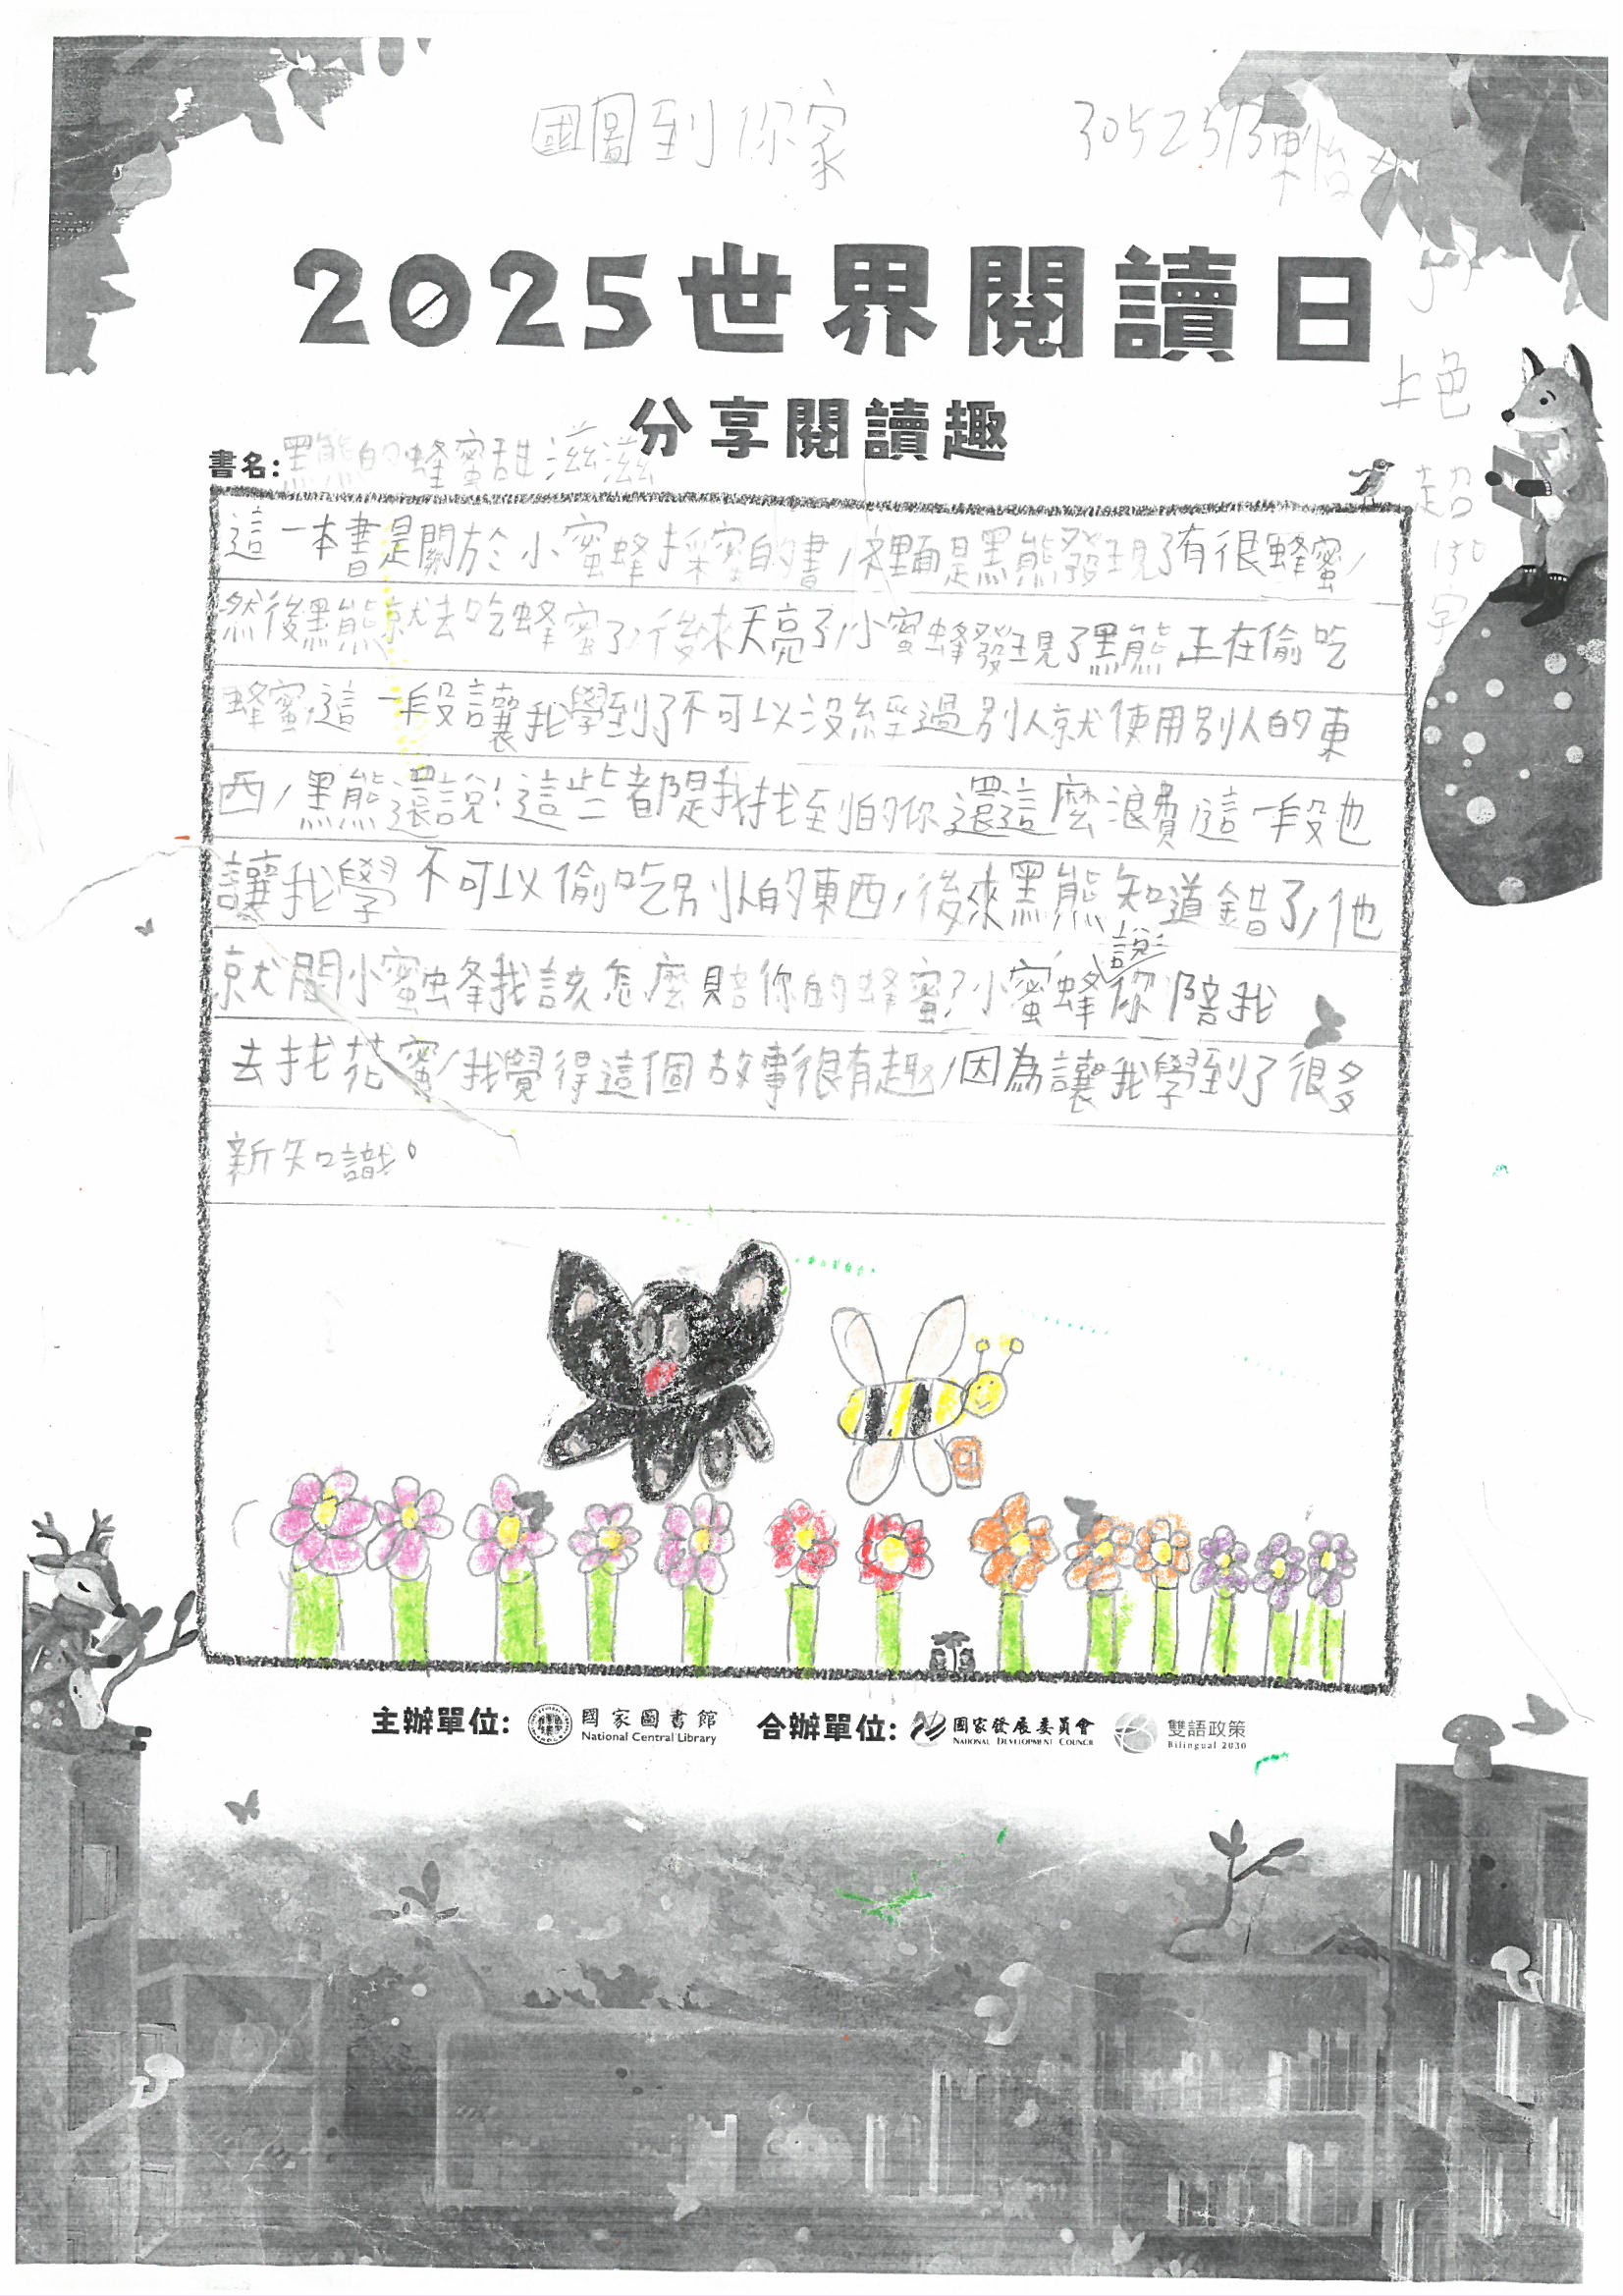 國圖到你家
30525 13 陳怡
2025世界閱讀日
上色
超
150
字
分享閱讀趣
書名:黑熊的蜂蜜甜滋滋
這一本書是關於小蜜蜂採蜜的書,裡面是黑熊發現了有很蜂蜜,
然後黑熊就去吃蜂蜜了,後來天亮了,小蜜蜂發現了黑熊正在偷吃
蜂蜜,這一段讓我學到了不可以沒經過別人就使用別人的東
西,黑熊還說!這些都是我找到的你還這麼浪費,這一段也
讓我學不可以偷吃別人的東西,後來黑熊知道錯了,他
就問小蜜蜂我該怎麼賠你的蜂蜜了,小蜜蜂說你陪我
去找花蜜,我覺得這個故事很有趣,因為讓我學到了很多
新知識。
主辦單位: 國家圖書館 National Central Library 合辦單位: 國家發展委員會 NATIONAL DEVELOPMENT COUNCIL 雙語政策 Bilingual 2030